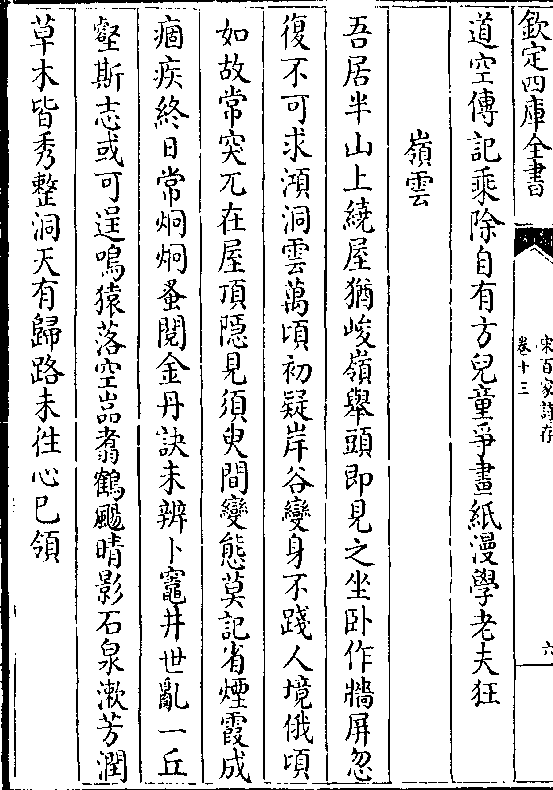 欽定四庫全書
宋百家詩存
卷十三
六
道空傳記乘除自有方兒童爭畫紙漫學老夫狂
嶺雲
吾居半山上繞屋猶峻嶺舉頭即見之坐卧作牆屏忽
復不可求澒洞雲萬頃初疑岸谷變身不踐人境俄頃
如故常突兀在屋頂隱見須臾間變態莫記省煙霞成
痼疾終日常炯炯蚤閱金丹訣未辨卜竈井世亂一丘
壑斯志或可逞鳴猿落空嵓翥鶴颺晴影石泉漱芳潤
草木皆秀整洞天有歸路未徃心已領